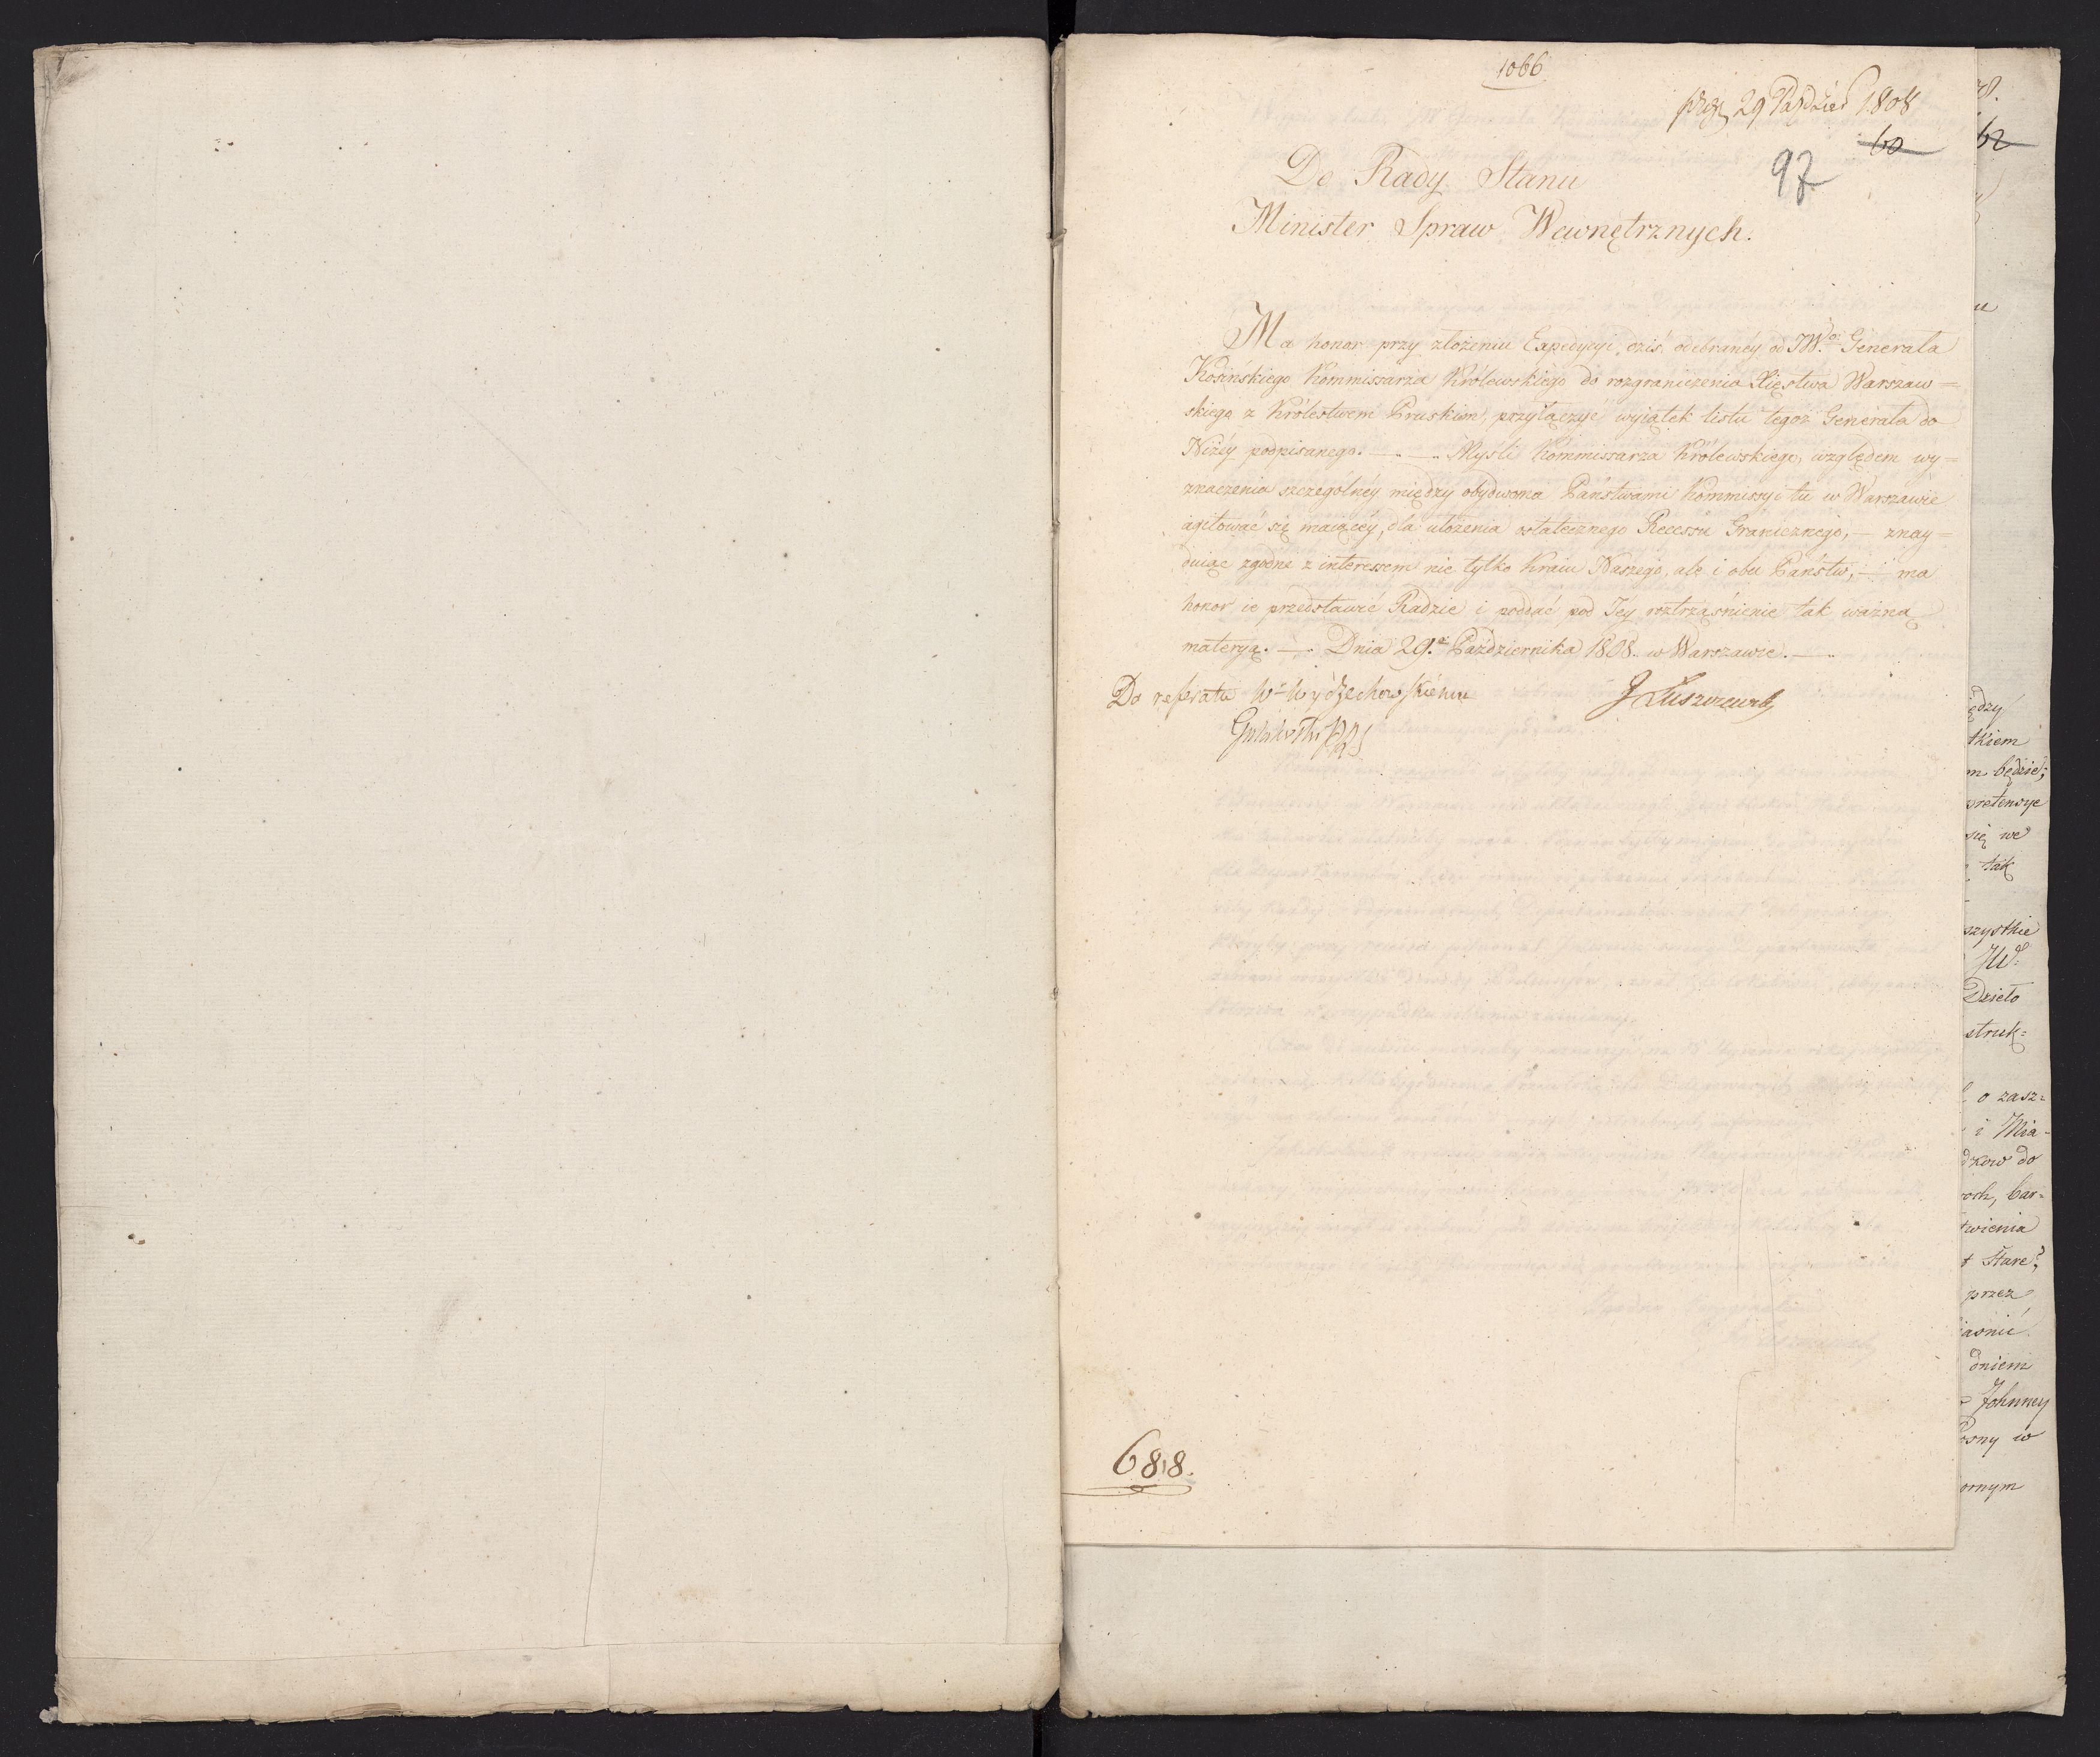 1066
29 Paździer 1808
60
97
Do Rady Stanu
Minister Spraw Wewnętrznych.
Ma honor przy złożeniu Expedycyi, dziś odebraney od JW. Generała
Kosińskiego Kommissarza Królewskiego do rozgraniczenia Xięstwa Warszaw=
skiego z Królestwem Pruskim, przyłączyć wyiątek listu tegoż Generała do
Niżey podpisanego. — Myśli Kommissarza Królewskiego, względem wy=
znaczenia szczególney między obydwoma Państwami Kommissyi tu w Warszawie
agitować się maiącey, dla ułożenia ostatecznego Recessu Granicznego, — znay=
duiąc zgodne z interessem nie tylko Kraiu Naszego, ale i obu Państw, — ma
honor ie przedstawić Radzie i poddać pod Jey roztrząśnienie tak ważną
materyą. — Dnia 29. Października 1808. w Warszawie. —
Do referatu W Wyczechowskiemu
J Łuszczewski
Gutakowski
688.
62
u
ędzy
tkiem
m będzie;
pretensye
się we
tak
szystkie
JW.
Dzieło
struk=
o zasz=
i Mia-
dkow do
och, bar=
twienia
Stare;
przez
iasnić.
dniem
Johnney
osny w
ornym